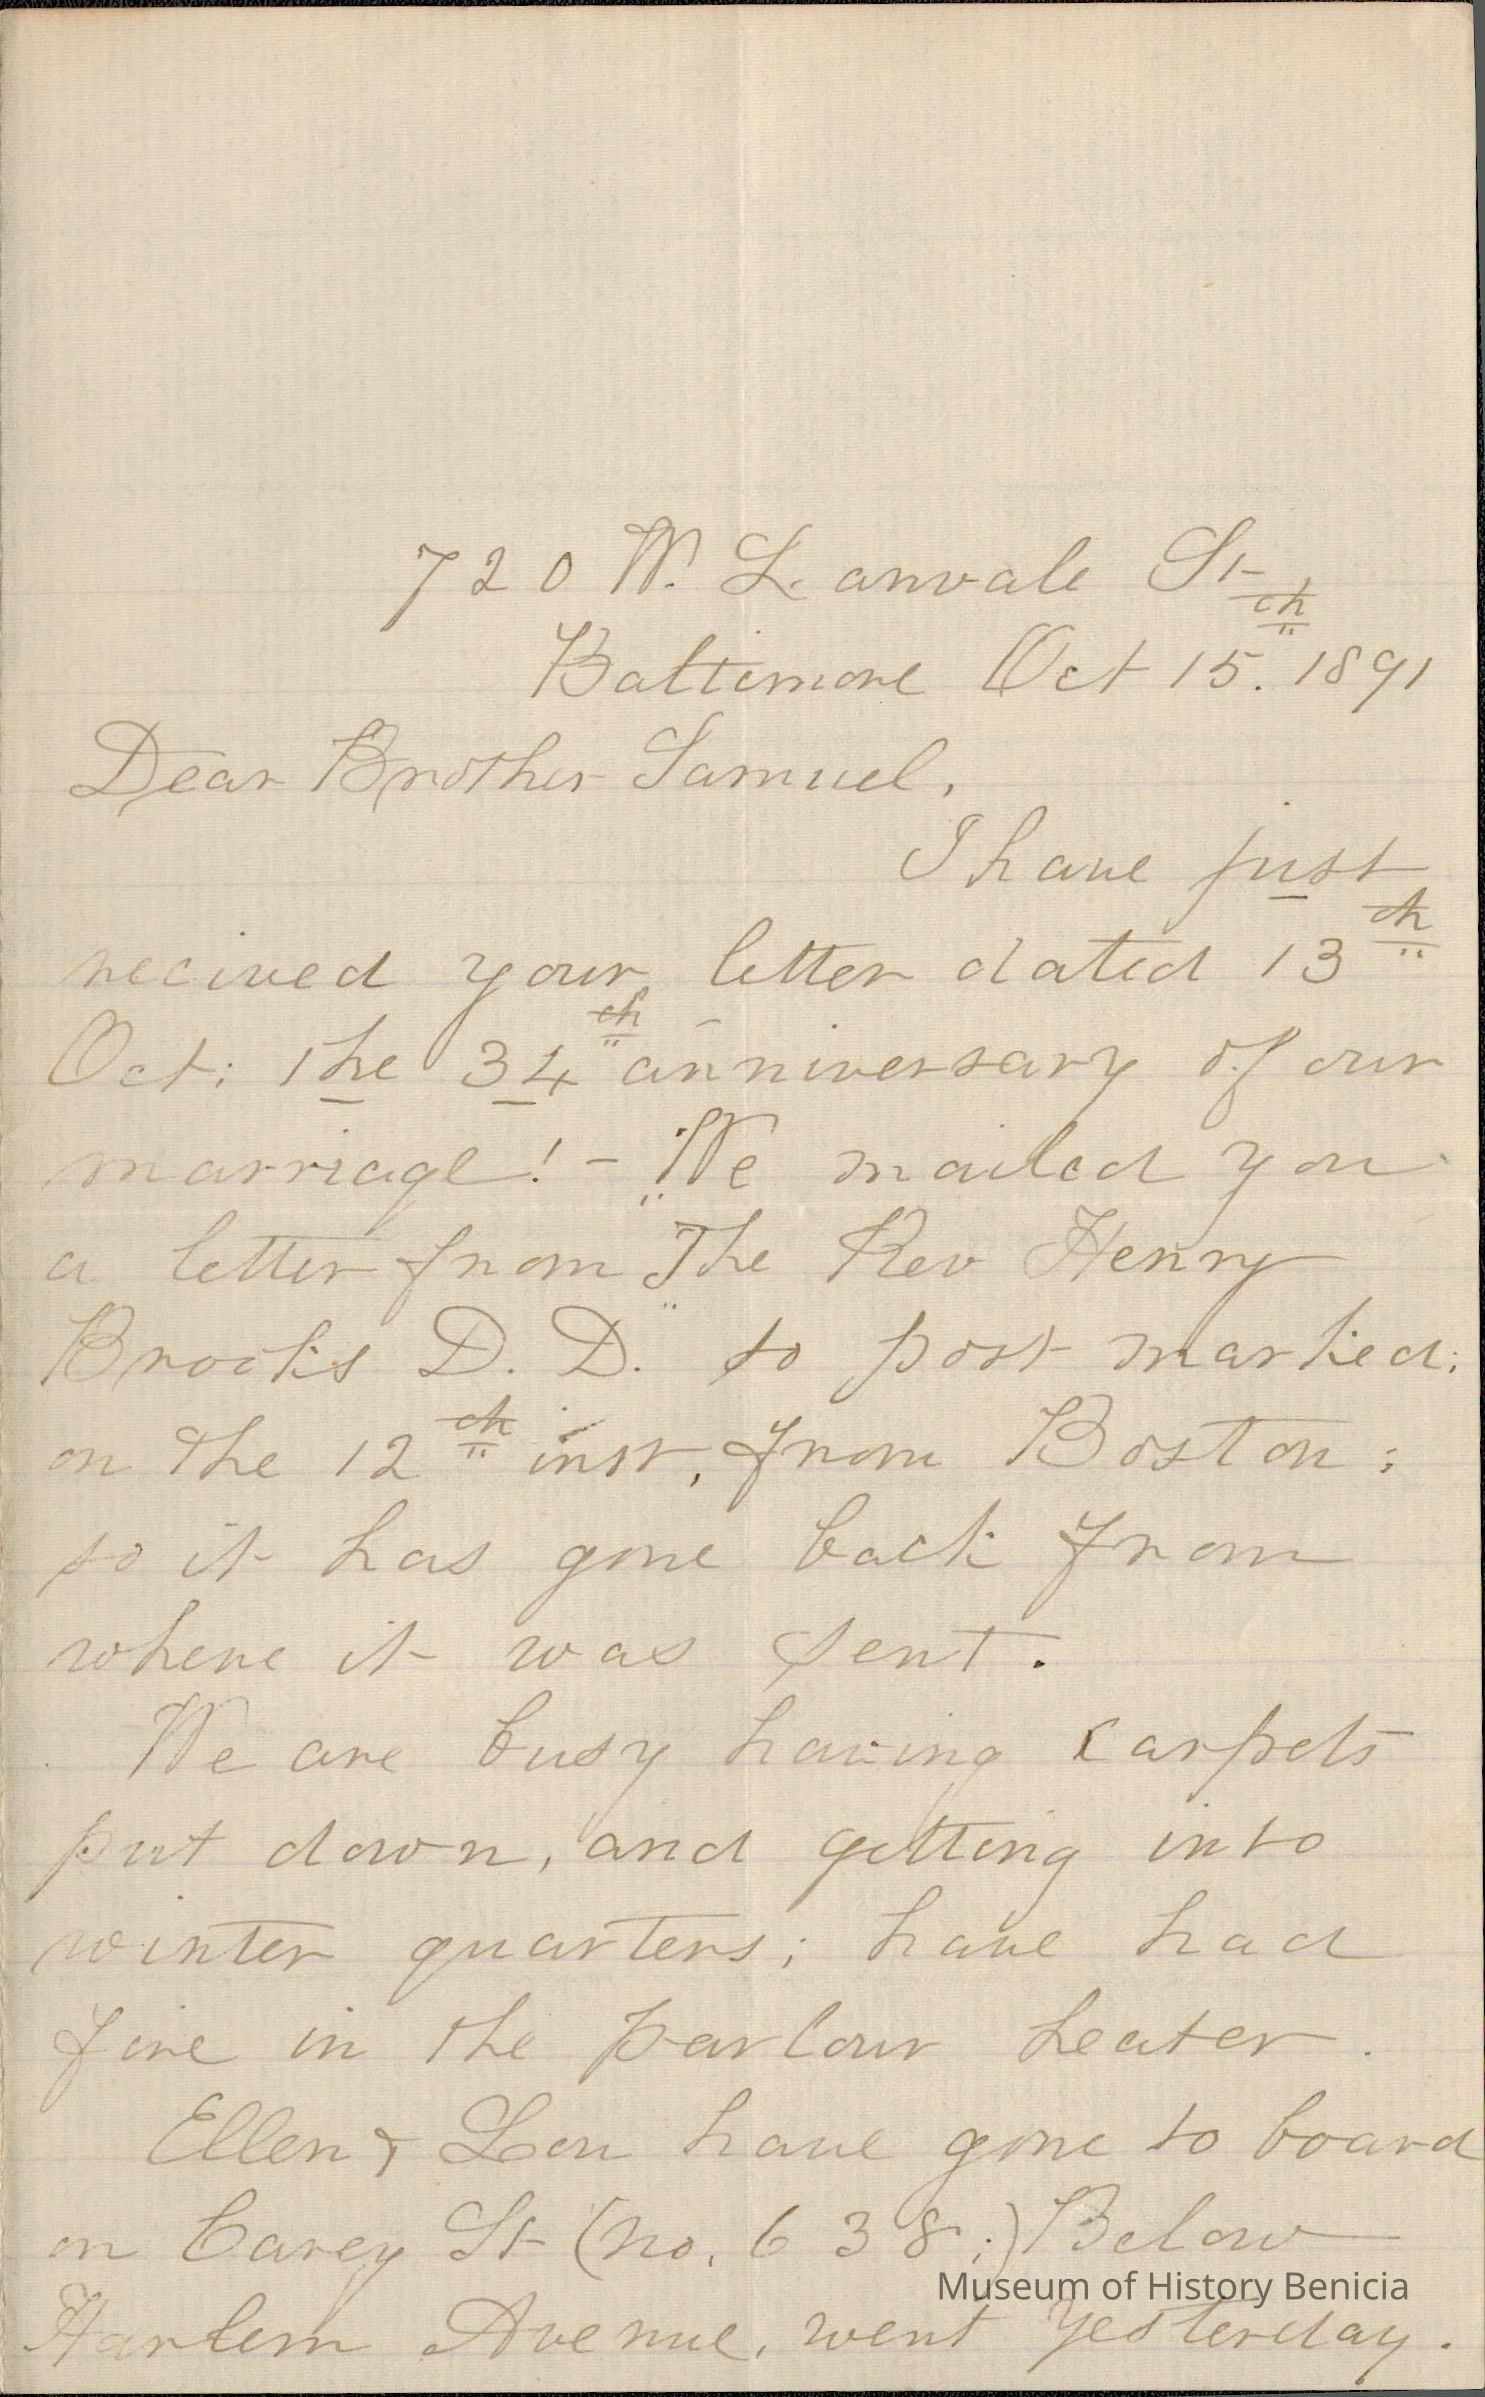 720 W. Lanvale St
Baltimore Oct 15th. 1891
Dear Brother Samuel,
I have just
recived your letter dated 13th
Oct; the 34th anniversary of our
marriage! - We mailed you
a letter from "The Rev Henry
Brooks D. D." to post marked;
on the 12th inst, from Boston;
so it has gone back from
where it was sent.
We are busy having carpets
put down, and getting into
winter quarters; have had
fire in the parlour heater.
Ellen & Lou have gone to board
on Carey St (no. 638;) Below
Harlem Avenue, went yesterday.
Museum of History Benicia